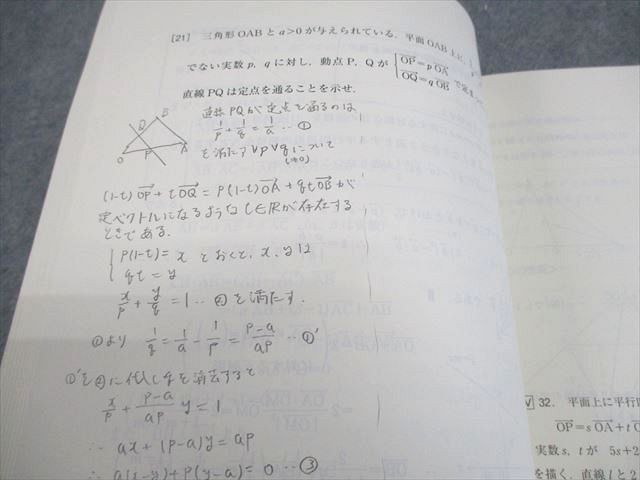 [21] 三角形OABとa>0が与えられている.平面OAB上に,
でない実数p,qに対し,動点P,Qが {OP=pOA OQ=qOB で定ま
直線PQは定点を通ることを示せ.
直線PQが定点を通るのは
1/p+1/q=1/a …①
を満たす∀p∀qについて
(≠0)
O P A Q B
(1-t)OP+tOQ=p(1-t)OA+qtOBが
定ベクトルになるようなt∈Rが存在する
ときである.
{p(1-t)=x とおくと,x,yは
qt=y
x/p+y/q=1…②を満たす.
①より 1/q=1/a-1/p=(p-a)/ap …①'
①'を②に代しqを消去すると
x/p+(p-a)/ap y=1
∴ ax+(p-a)y=ap
∴ a(x-y)+p(y-a)=0 …③
32. 平面上に平行
OP=sOA+tO
実数s,tが 5s+2
を描く.直線lと2